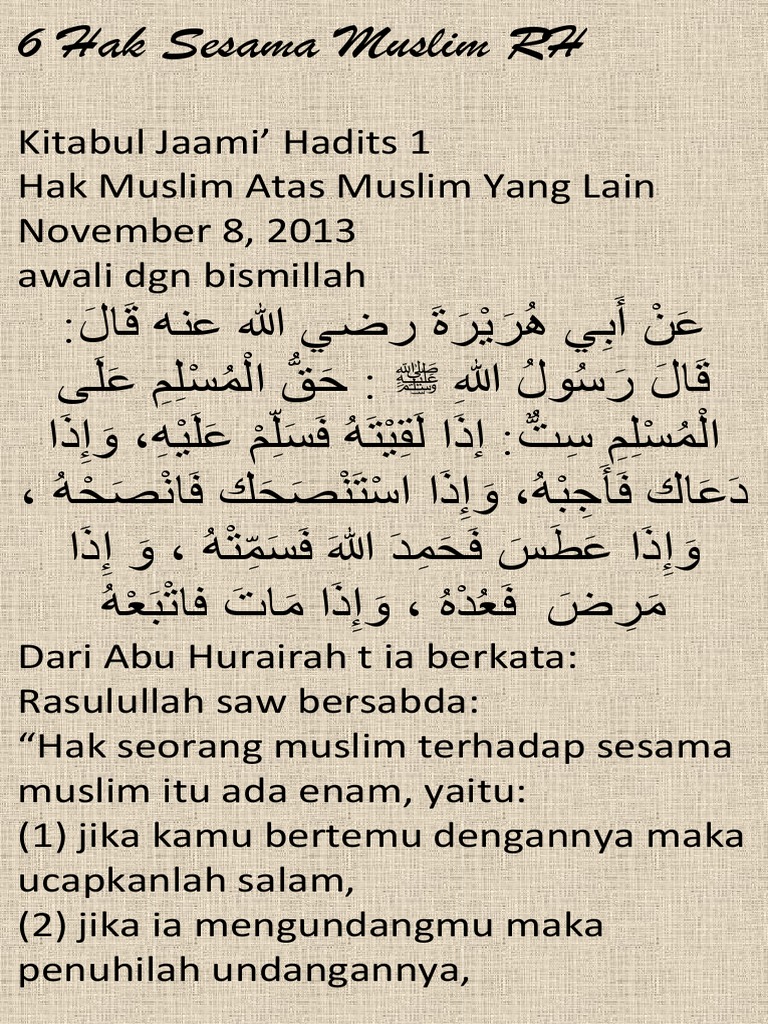 6 Hak Sesama Muslim RH
Kitabul Jaami’ Hadits 1
Hak Muslim Atas Muslim Yang Lain
November 8, 2013
awali dgn bismillah
عَنْ أَبِي هُرَيْرَةَ رضي الله عنه قَالَ:
قَالَ رَسُولُ اللهِ ﷺ : حَقُّ الْمُسْلِمِ عَلَى
الْمُسْلِمِ سِتٌّ: إِذَا لَقِيْتَهُ فَسَلِّمْ عَلَيْهِ، وَإِذَا
دَعَاك فَأَجِبْهُ، وَإِذَا اسْتَنْصَحَك فَانْصَحْهُ ،
وَإِذَا عَطَسَ فَحَمِدَ اللهَ فَسَمِّتْهُ ، وَ إِذَا
مَرِضَ فَعُدْهُ ، وَإِذَا مَاتَ فاتْبَعْهُ
Dari Abu Hurairah t ia berkata:
Rasulullah saw bersabda:
“Hak seorang muslim terhadap sesama
muslim itu ada enam, yaitu:
(1) jika kamu bertemu dengannya maka
ucapkanlah salam,
(2) jika ia mengundangmu maka
penuhilah undangannya,